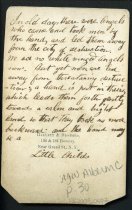 In old days there were angels
who came and took men by
the hand and led them away
from the city of destruction.
We see no white winged angels
now. But yet men are led
away from threatening destruc-
tion; a hand is put in theirs,
which leads them forth gently
towards a calm and bright
land, so that they look no more
backward; and the hand may
be a
Little Child's
P 30